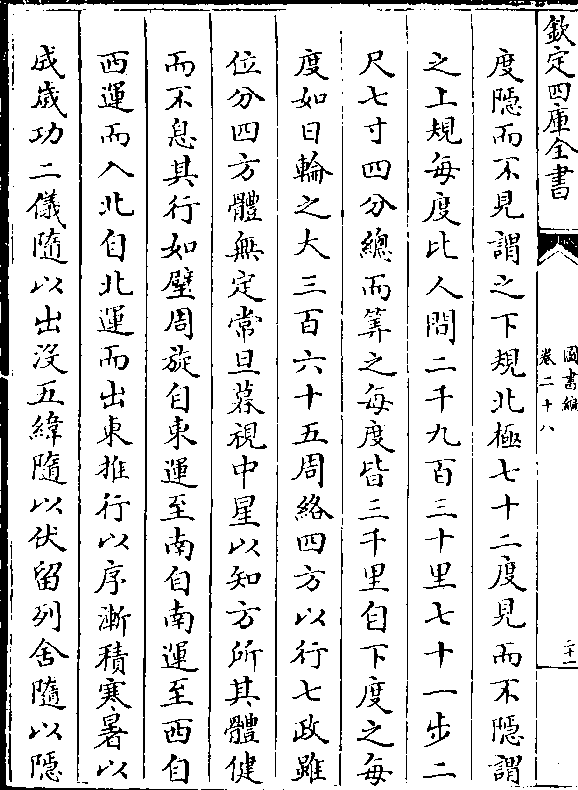 欽定四庫全書
圖書編
卷二十八
二十一
度隱而不見謂之下規北極七十二度見而不隱謂
之上規每度比人間二千九百三十里七十一步二
尺七寸四分總而筭之每度皆三千里自下度之每
度如日輪之大三百六十五周絡四方以行七政雖
位分四方體無定常旦暮視中星以知方所其體健
而不息其行如壁周旋自東運至南自南運至西自
西運而入北自北運而出東推行以序漸積寒暑以
成歲功二儀隨以出沒五緯隨以伏留列舍隨以隱